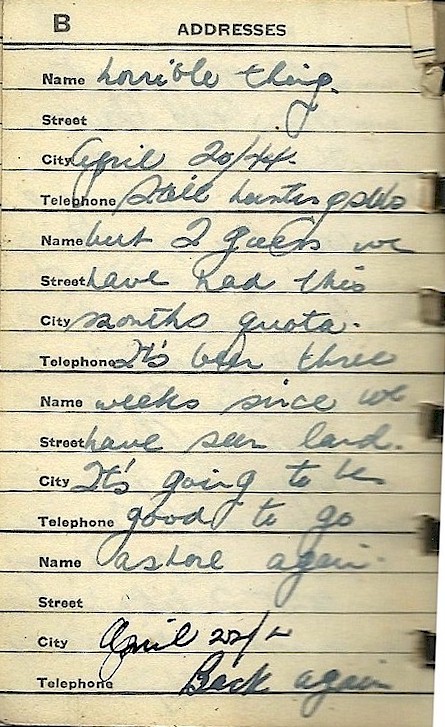 B ADDRESSES
Name horrible thing.
Street
City April 20/44.
Telephone Still hunting subs
Name but I guess we
Street have had this
City months quota.
Telephone It's been three
Name weeks since we
Street have seen land.
City It's going to be
Telephone good to go
Name ashore again.
Street
City April 22/
Telephone Back again